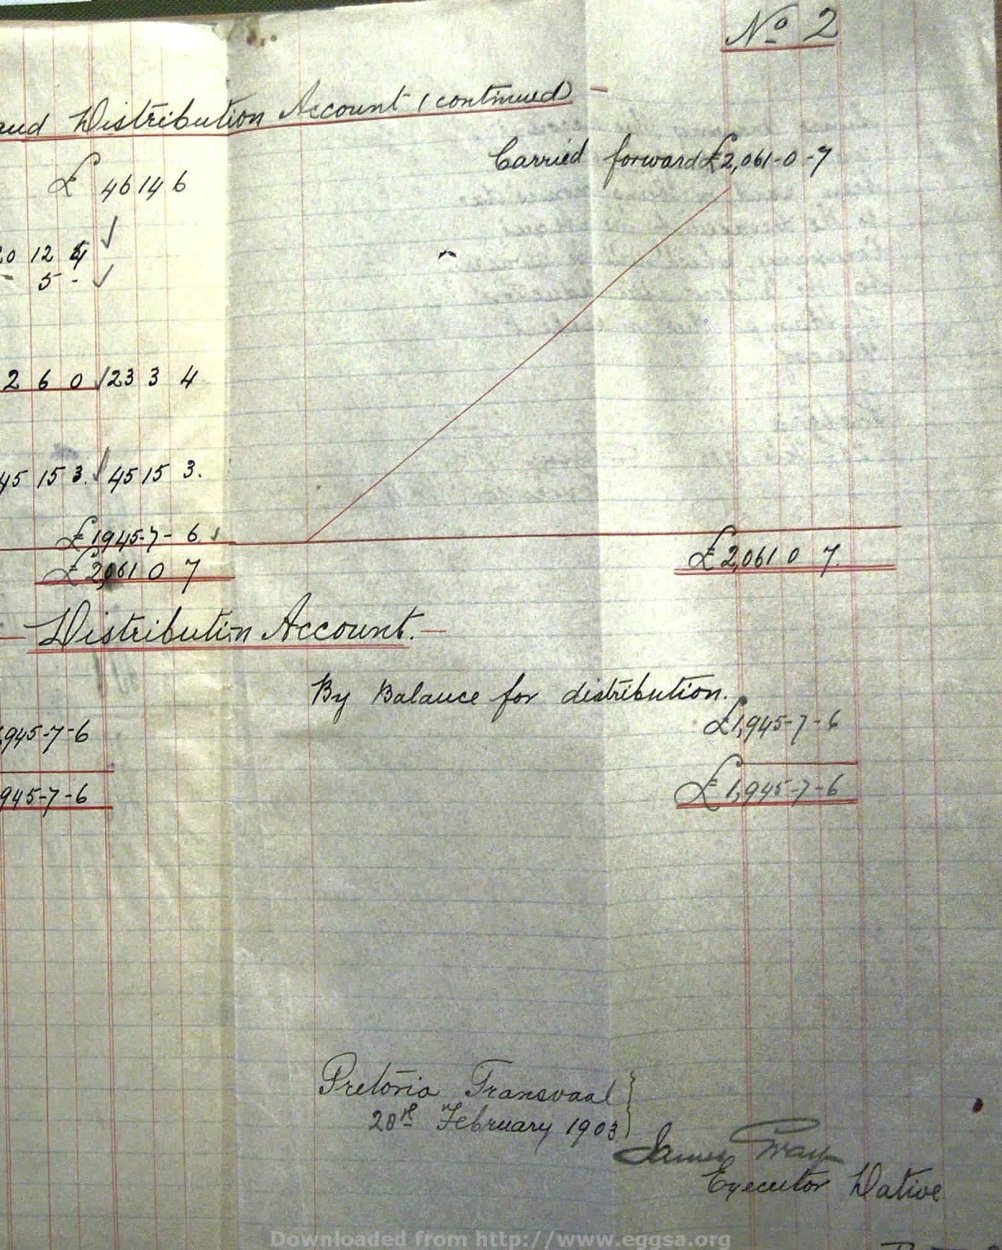 No 2
and Distribution Account (continued) —
Carried forward £2,061-0-7
£ 46 14 6
20 12 4
- 5 -
2 6 0 23 3 4
45 15 3. 45 15 3.
£1945-7-6
£2,061 0 7 £2,061 0 7.
— Distribution Account. —
By Balance for distribution.
£1,945-7-6
,945-7-6
£1,945-7-6
945-7-6
Pretoria Transvaal
28th February 1903
James Gray
Executor Dative
Downloaded from http://www.eggsa.org